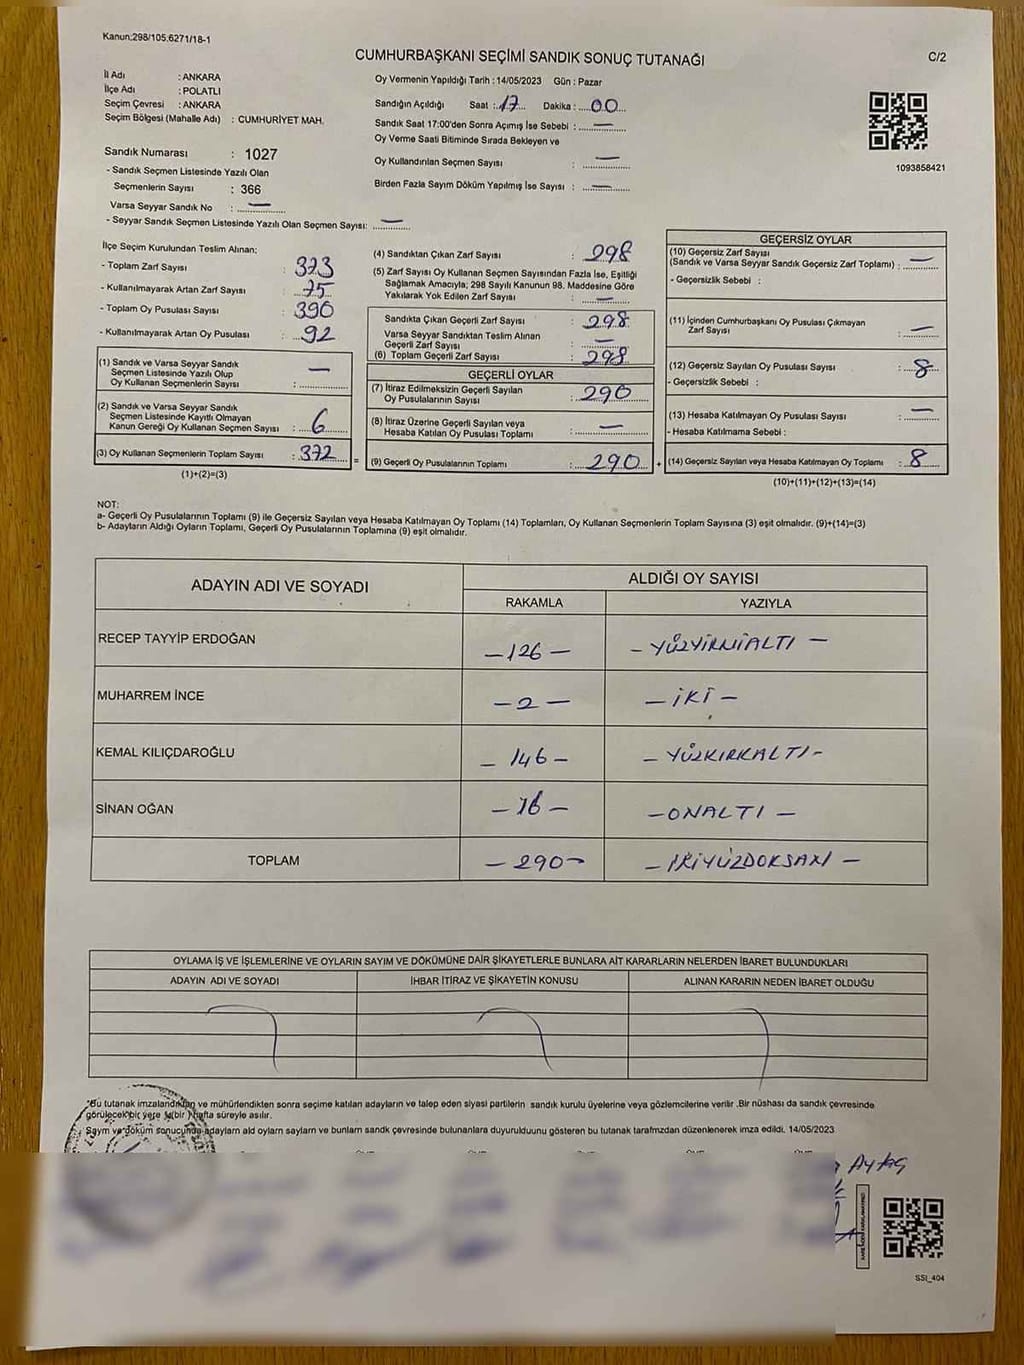 Kanun:298/105;6271/18-1
CUMHURBAŞKANI SEÇİMİ SANDIK SONUÇ TUTANAĞI
C/2
İl Adı : ANKARA
İlçe Adı : POLATLI
Seçim Çevresi : ANKARA
Seçim Bölgesi (Mahalle Adı) : CUMHURİYET MAH.
Sandık Numarası : 1027
- Sandık Seçmen Listesinde Yazılı Olan
Seçmenlerin Sayısı : 366
Varsa Seyyar Sandık No : —
- Seyyar Sandık Seçmen Listesinde Yazılı Olan Seçmen Sayısı: —
Oy Vermenin Yapıldığı Tarih : 14/05/2023 Gün : Pazar
Sandığın Açıldığı Saat : 17 Dakika : 00
Sandık Saat 17:00'den Sonra Açımış İse Sebebi : —
Oy Verme Saati Bitiminde Sırada Bekleyen ve
Oy Kullandırılan Seçmen Sayısı : —
Birden Fazla Sayım Döküm Yapılmış İse Sayısı : —
1093858421
İlçe Seçim Kurulundan Teslim Alınan:
- Toplam Zarf Sayısı : 373
- Kullanılmayarak Artan Zarf Sayısı : 75
- Toplam Oy Pusulası Sayısı : 390
- Kullanılmayarak Artan Oy Pusulası : 92
(1) Sandık ve Varsa Seyyar Sandık
Seçmen Listesinde Yazılı Olup
Oy Kullanan Seçmenlerin Sayısı : —
(2) Sandık ve Varsa Seyyar Sandık
Seçmen Listesinde Kayıtlı Olmayan
Kanun Gereği Oy Kullanan Seçmen Sayısı : 6
(3) Oy Kullanan Seçmenlerin Toplam Sayısı : 372
(1)+(2)=(3)
(4) Sandıktan Çıkan Zarf Sayısı : 298
(5) Zarf Sayısı Oy Kullanan Seçmen Sayısından Fazla İse, Eşitliği
Sağlamak Amacıyla; 298 Sayılı Kanunun 98. Maddesine Göre
Yakılarak Yok Edilen Zarf Sayısı : —
Sandıkta Çıkan Geçerli Zarf Sayısı : 298
Varsa Seyyar Sandıktan Teslim Alınan
Geçerli Zarf Sayısı : —
(6) Toplam Geçerli Zarf Sayısı : 298
GEÇERLİ OYLAR
(7) İtiraz Edilmeksizin Geçerli Sayılan
Oy Pusulalarının Sayısı : 290
(8) İtiraz Üzerine Geçerli Sayılan veya
Hesaba Katılan Oy Pusulası Toplamı : —
= (9) Geçerli Oy Pusulalarının Toplamı : 290
GEÇERSİZ OYLAR
(10) Geçersiz Zarf Sayısı
(Sandık ve Varsa Seyyar Sandık Geçersiz Zarf Toplamı) : —
- Geçersizlik Sebebi :
(11) İçinden Cumhurbaşkanı Oy Pusulası Çıkmayan
Zarf Sayısı : —
(12) Geçersiz Sayılan Oy Pusulası Sayısı : 8
- Geçersizlik Sebebi :
(13) Hesaba Katılmayan Oy Pusulası Sayısı : —
- Hesaba Katılmama Sebebi :
+ (14) Geçersiz Sayılan veya Hesaba Katılmayan Oy Toplamı : 8
(10)+(11)+(12)+(13)=(14)
NOT:
a- Geçerli Oy Pusulalarının Toplamı (9) ile Geçersiz Sayılan veya Hesaba Katılmayan Oy Toplamı (14) Toplamları, Oy Kullanan Seçmenlerin Toplam Sayısına (3) eşit olmalıdır. (9)+(14)=(3)
b- Adayların Aldığı Oyların Toplamı, Geçerli Oy Pusulalarının Toplamına (9) eşit olmalıdır.
ADAYIN ADI VE SOYADI
ALDIĞI OY SAYISI
RAKAMLA YAZIYLA
RECEP TAYYİP ERDOĞAN — 126 — — YÜZYİRMİALTI —
MUHARREM İNCE — 2 — — İKİ —
KEMAL KILIÇDAROĞLU — 146 — — YÜZKIRKALTI —
SİNAN OĞAN — 16 — — ONALTI —
TOPLAM — 290 — — İKİYÜZDOKSAN —
OYLAMA İŞ VE İŞLEMLERİNE VE OYLARIN SAYIM VE DÖKÜMÜNE DAİR ŞİKAYETLERLE BUNLARA AİT KARARLARIN NELERDEN İBARET BULUNDUKLARI
ADAYIN ADI VE SOYADI İHBAR İTİRAZ VE ŞİKAYETİN KONUSU ALINAN KARARIN NEDEN İBARET OLDUĞU
"Bu tutanak imzalandıktan ve mühürlendikten sonra seçime katılan adayların ve talep eden siyasi partilerin sandık kurulu üyelerine veya gözlemcilerine verilir .Bir nüshası da sandık çevresinde
görülecek bir yere 1(bir) hafta süreyle asılır.
Sayım ve döküm sonucunda adayların ald oyların sayların ve bunların sandk çevresinde bulunanlara duyurulduunu gösteren bu tutanak tarafmzdan düzenlenerek imza edildi. 14/05/2023
Aytaç
SSI_404